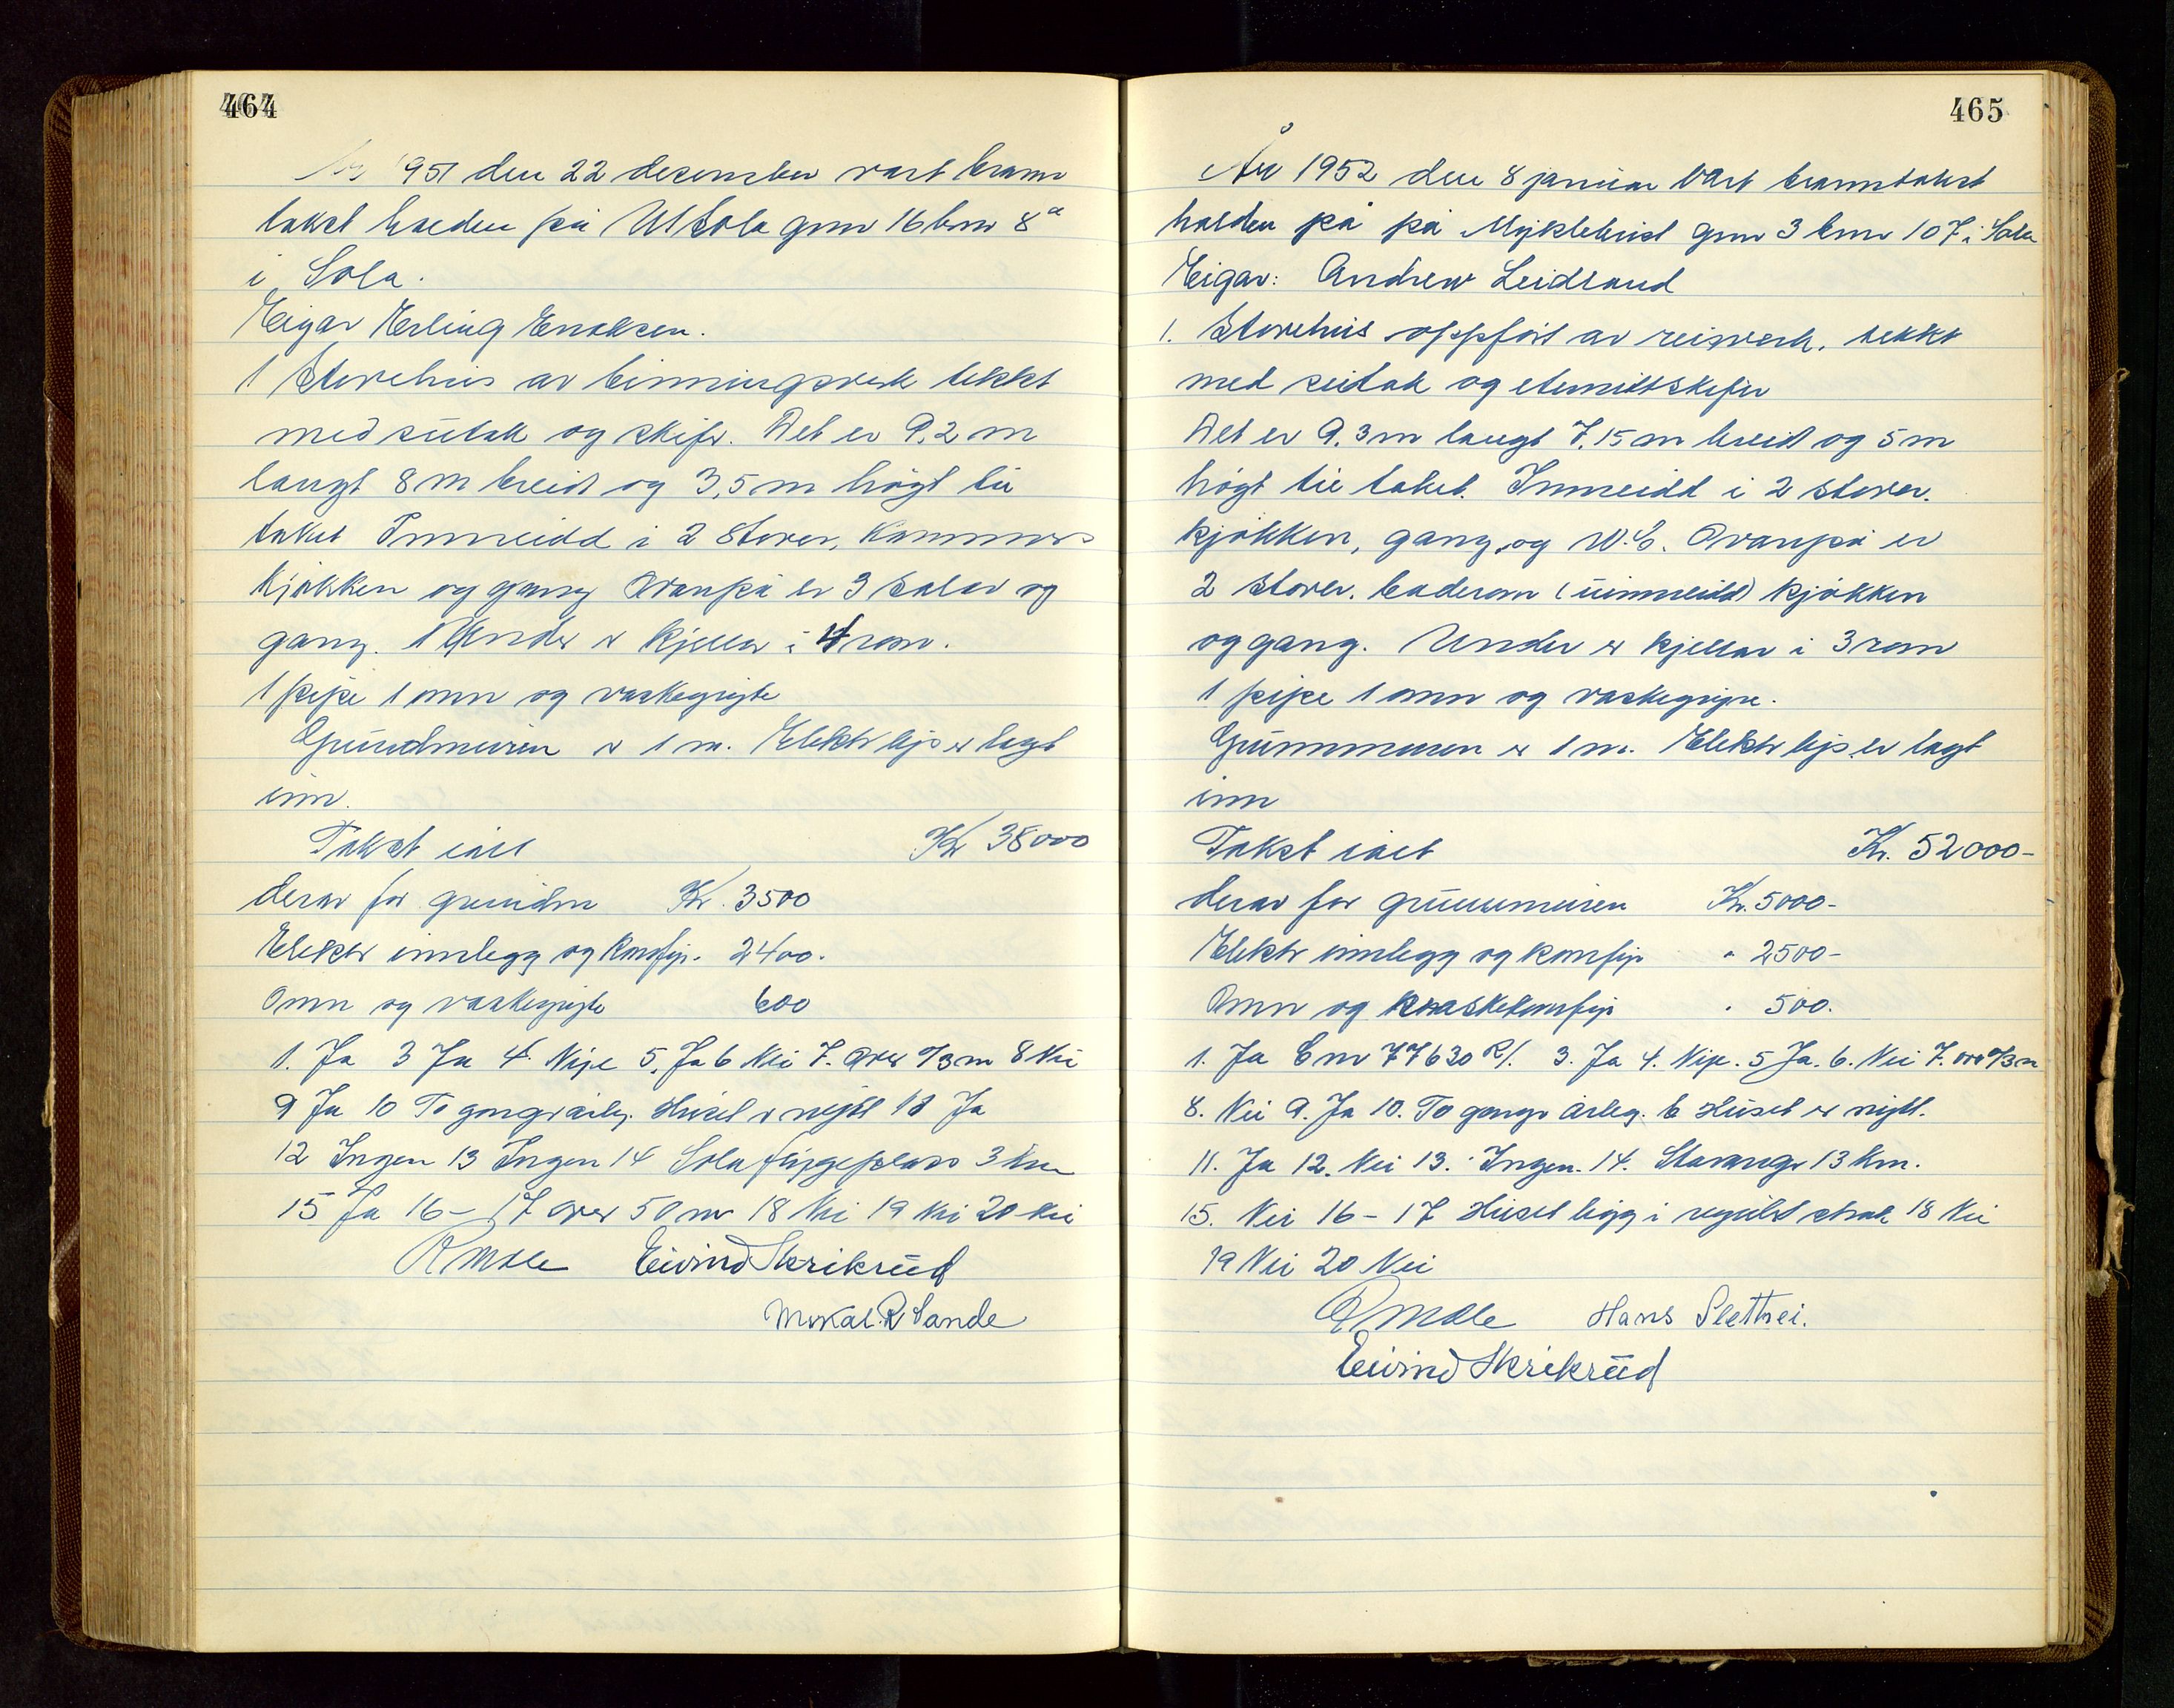 464
År 1951 den 22 desember vart brann
takst halden på Utsola gnr 16 bnr 8a
i Sola.
Eigar Erling Enoksen.
1 Stovehus av binningsverk tekkt
med sutak og skifer. Det er 9,2 m
langt 8 m breidt og 3,5 m högt til
taket Innreidd i 2 stover, kammers
kjøkken og gang Ovanpå er 3 salar og
gang. Under er kjellar i 4 rom.
1 pipe 1 omn og vaskegryte
Grundmuren er 1 m. Elektr lys er lagt
inn.
Takst ialt Kr 38000
derav for grundm Kr. 3500
Elektr innlegg og komfyr. 2400.
Omn og vaskegryte 600
1. Ja 3 Ja 4. Nye 5. Ja 6 Nei 7. Over 0/3 m 8 Nei
9 Ja 10 To gonger årleg. Huset er nytt 11 Ja
12 Ingen 13 Ingen 14 Sola flygeplass 3 km
15 Ja 16 - 17 Over 50 m 18 Nei 19 Nei 20 Nei
Eivind Skrikrud
Mikal R Sande
465
År 1952 den 8 januar vart branntakst
halden på på Myklebust gnr 3 bnr 107 i Sola
Eigar: Andrew Leidland
1. Stovehus oppført av reisverk, tekkt
med sutak og eternittskifer
Det er 9.3 m langt 7.15 m breidt og 5 m
högt til taket. Innreidd i 2 stover.
kjøkken, gang, og W.C. Ovanpå er
2 stover. baderom (uinnreidd) kjøkken
og gang. Under er kjellar i 3 rom
1 pipe 1 omn og vaskegryte.
Grunnmuren er 1 m. Elektr lys er lagt
inn
Takst ialt Kr. 52000-
derav for grunnmuren Kr. 5000-
Elektr innlegg og komfyr " 2500-
Omn og 500.
1. Ja Bnr 77630 R/. 3. Ja 4. Nye. 5 Ja. 6. Nei 7. over 0/3 m
8. Nei 9. Ja 10. To gonger årleg. b Huset er nytt.
11. Ja 12. Nei 13. Ingen. 14. Stavanger 13 km.
15. Nei 16 - 17 Huset ligg i regulert strøk 18 Nei
19 Nei 20 Nei
Hans Slettnei.
Eivind Skrikrud